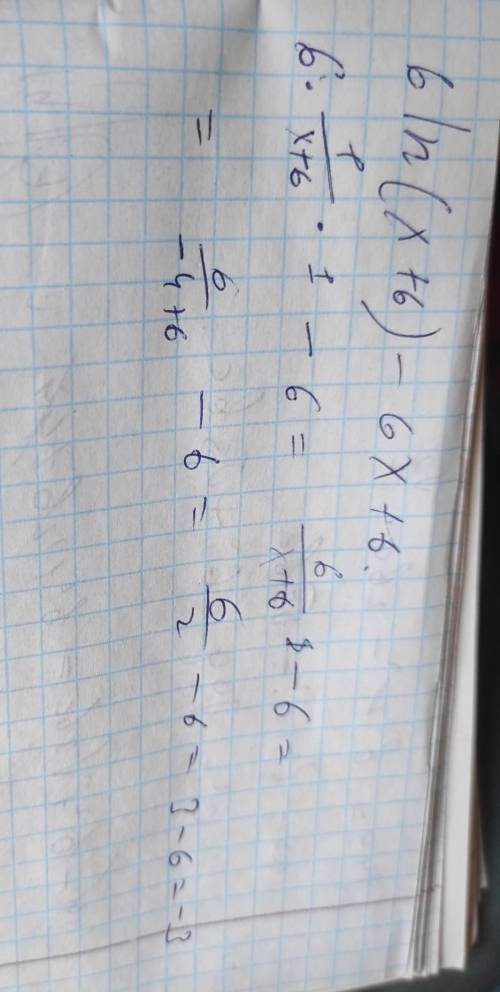 6 ln(x+6) - 6x+6.
6 · 1/(x+6) · 1 - 6 = 6/(x+6) - 6 =
= 6/(-4+6) - 6 = 6/2 - 6 = 3-6 = -3